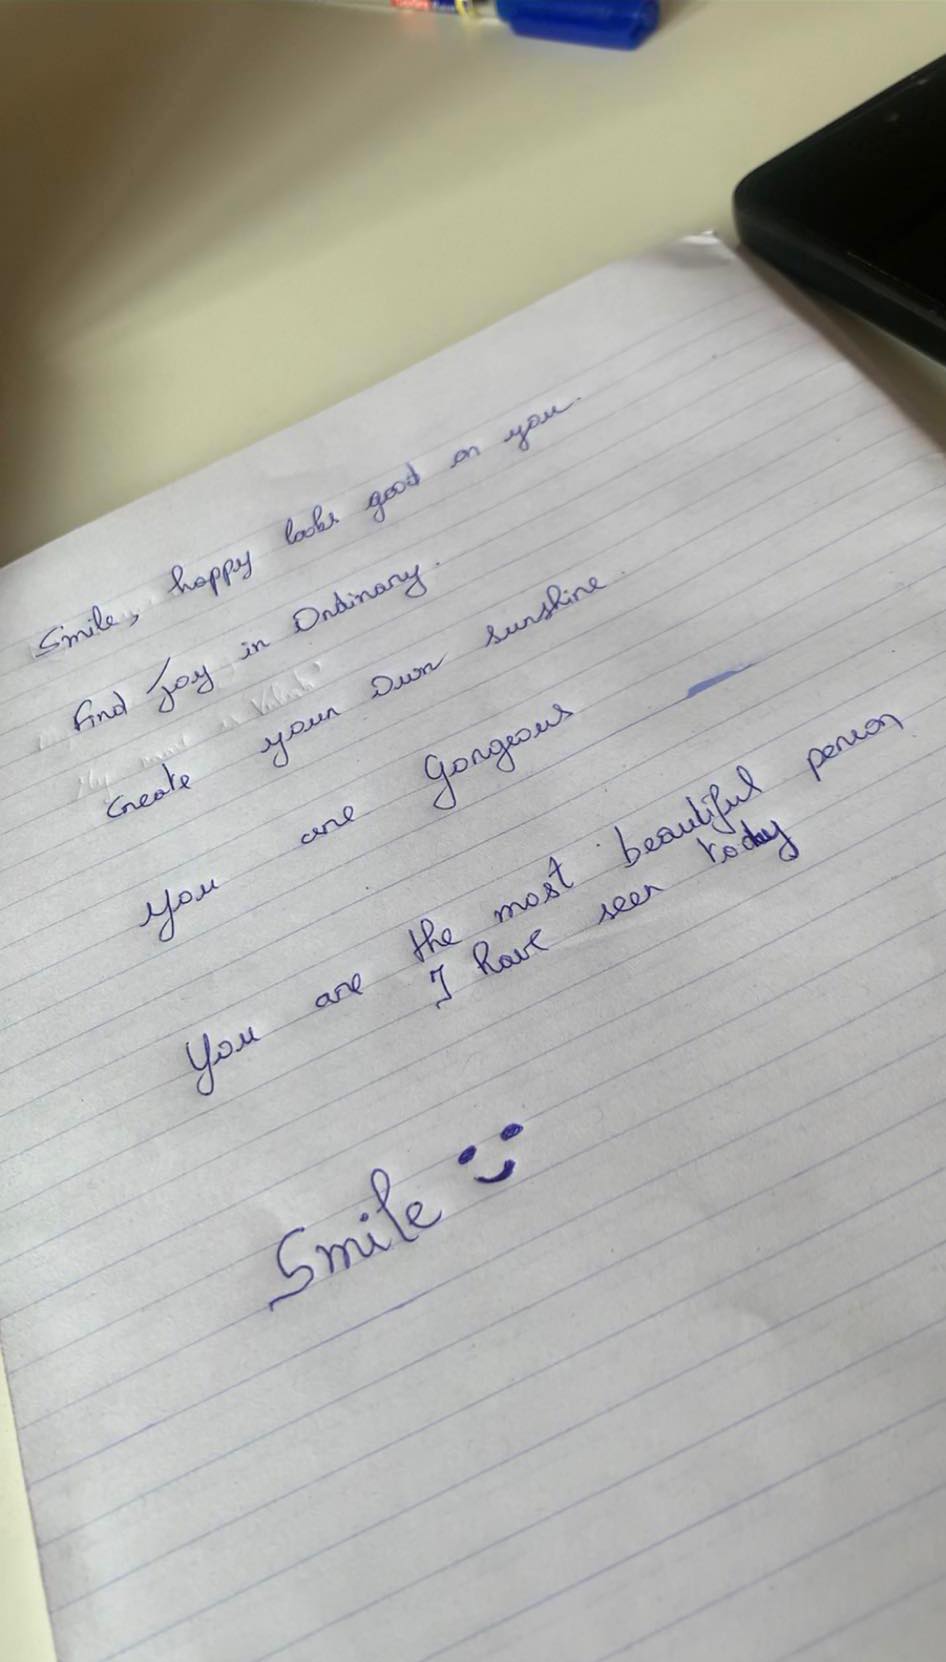 Smile, happy looks good on you.
Find Joy in Ordinary.
Create your Own sunshine.
You are Gorgeous
You are the most beautiful person
I have seen today
Smile